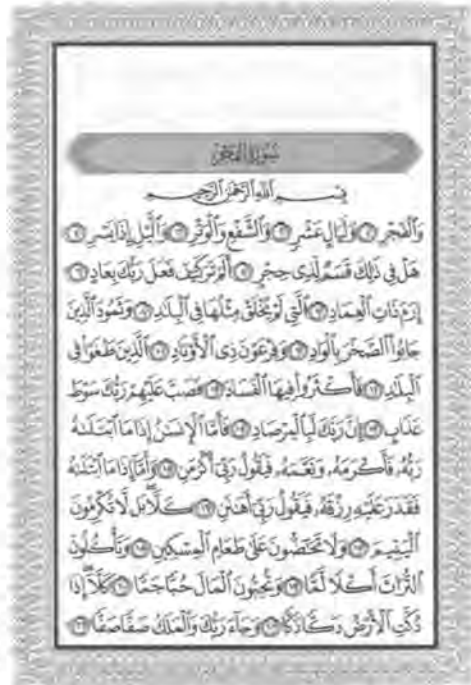 سورة الفجر
بسم الله الرحمن الرحيم
والفجر ١ وليال عشر ٢ والشفع والوتر ٣ واليل إذا يسر ٤
هل في ذلك قسم لذي حجر ٥ ألم تر كيف فعل ربك بعاد ٦
إرم ذات العماد ٧ التي لم يخلق مثلها في البلد ٨ وثمود الذين
جابوا الصخر بالواد ٩ وفرعون ذي الأوتاد ١٠ الذين طغوا في
البلد ١١ فأكثروا فيها الفساد ١٢ فصب عليهم ربك سوط
عذاب ١٣ إن ربك لبالمرصاد ١٤ فأما الإنسن إذا ما ابتلىه
ربه فأكرمه ونعمه فيقول ربي أكرمن ١٥ وأما إذا ما ابتلىه
فقدر عليه رزقه فيقول ربي أهنن ١٦ كلا بل لا تكرمون
اليتيم ١٧ ولا تحضون على طعام المسكين ١٨ وتأكلون
التراث أكلا لما ١٩ وتحبون المال حبا جما ٢٠ كلا إذا
دكت الأرض دكا دكا ٢١ وجاء ربك والملك صفا صفا ٢٢